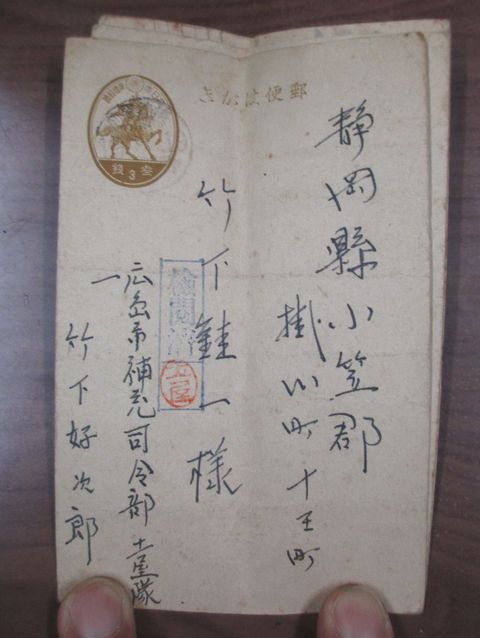 郵便はがき
静岡縣小笠郡
掛川町十王町
竹下鮭一様
検閲済
土屋
広島市補充司令部 土屋隊
竹下好次郎
参3銭